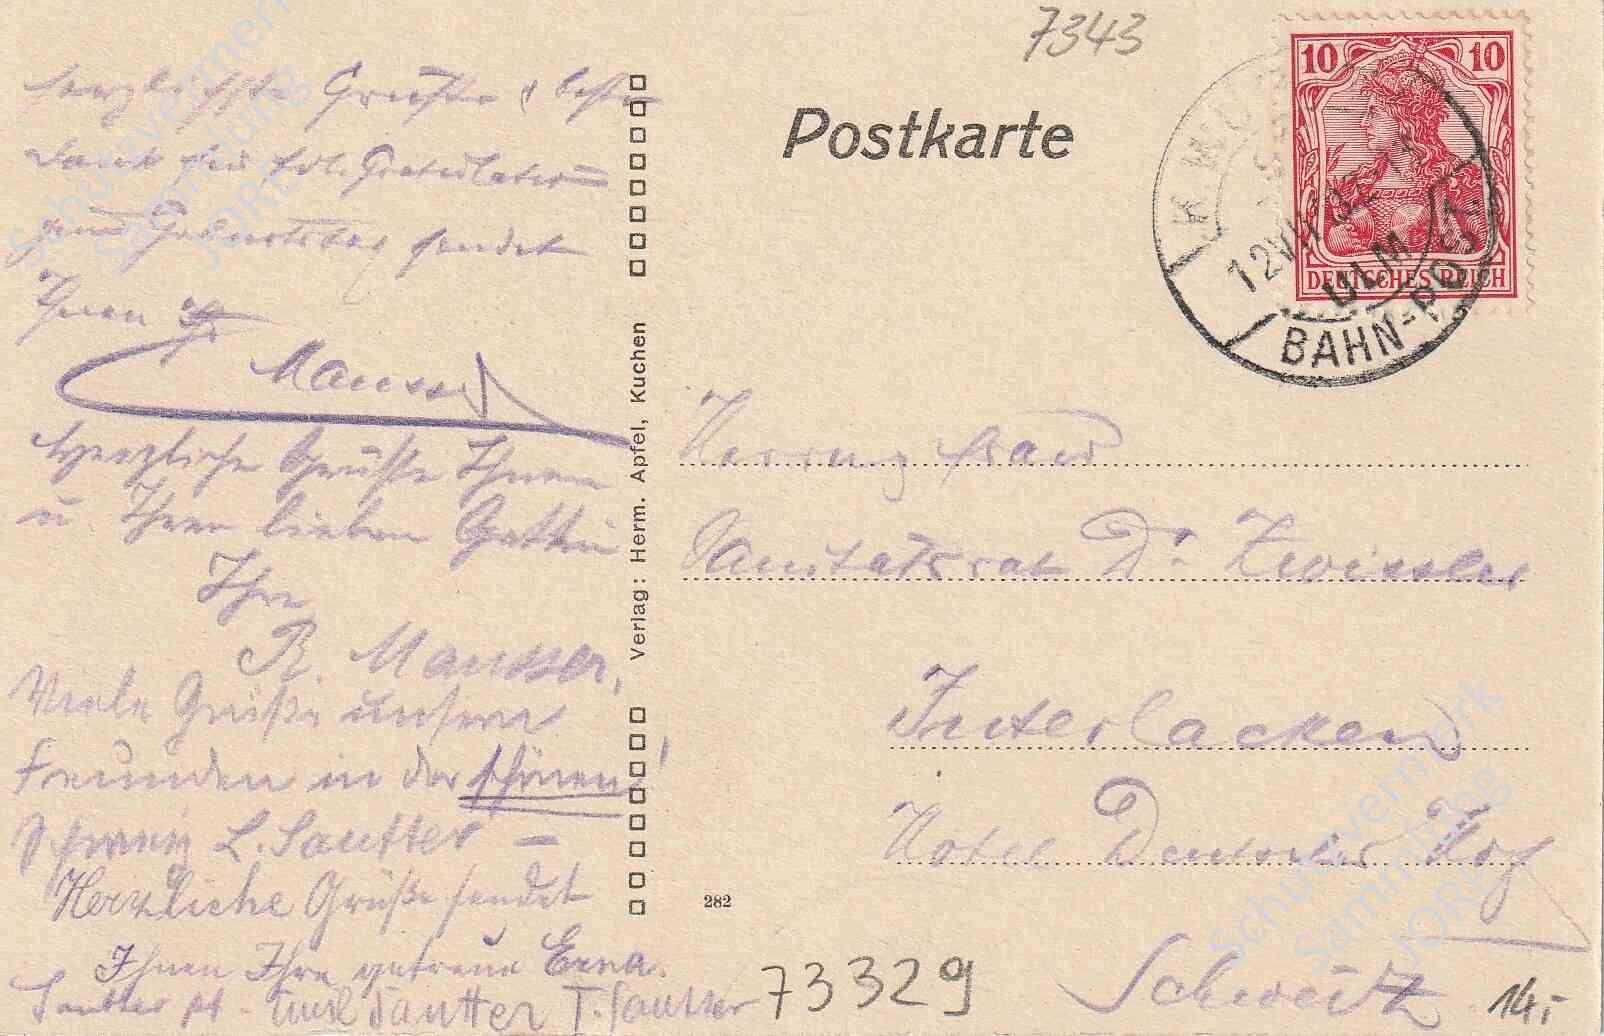 7343
Postkarte
10 10
DEUTSCHES REICH
K. WÜ
ULM
BAHN-POST.
herzlichste Grüße & besten
Dank für frdl. Gratulation
zum Geburtstag sendet
Ihnen Ihr
Mausser
Herzliche Grüße Ihnen
u. Ihrer lieben Gattin
Ihr
R. Mausser,
Viele Grüße unsern
Freunden in der schönen!
Schweiz L. Sautter –
Herzliche Grüße sendet
Ihnen Ihre getreue Erna
Sautter Emil Sautter T. Sautter
Verlag: Herm. Apfel, Kuchen
282
Herrn
Sanitätsrat Dr. Zwissler
Interlacken
Hotel Deutscher Hof
Schweitz
73329
14.-
Schutzvermerk
Sammlung
JOREL
Schutzvermerk
Sammlung
JOREL